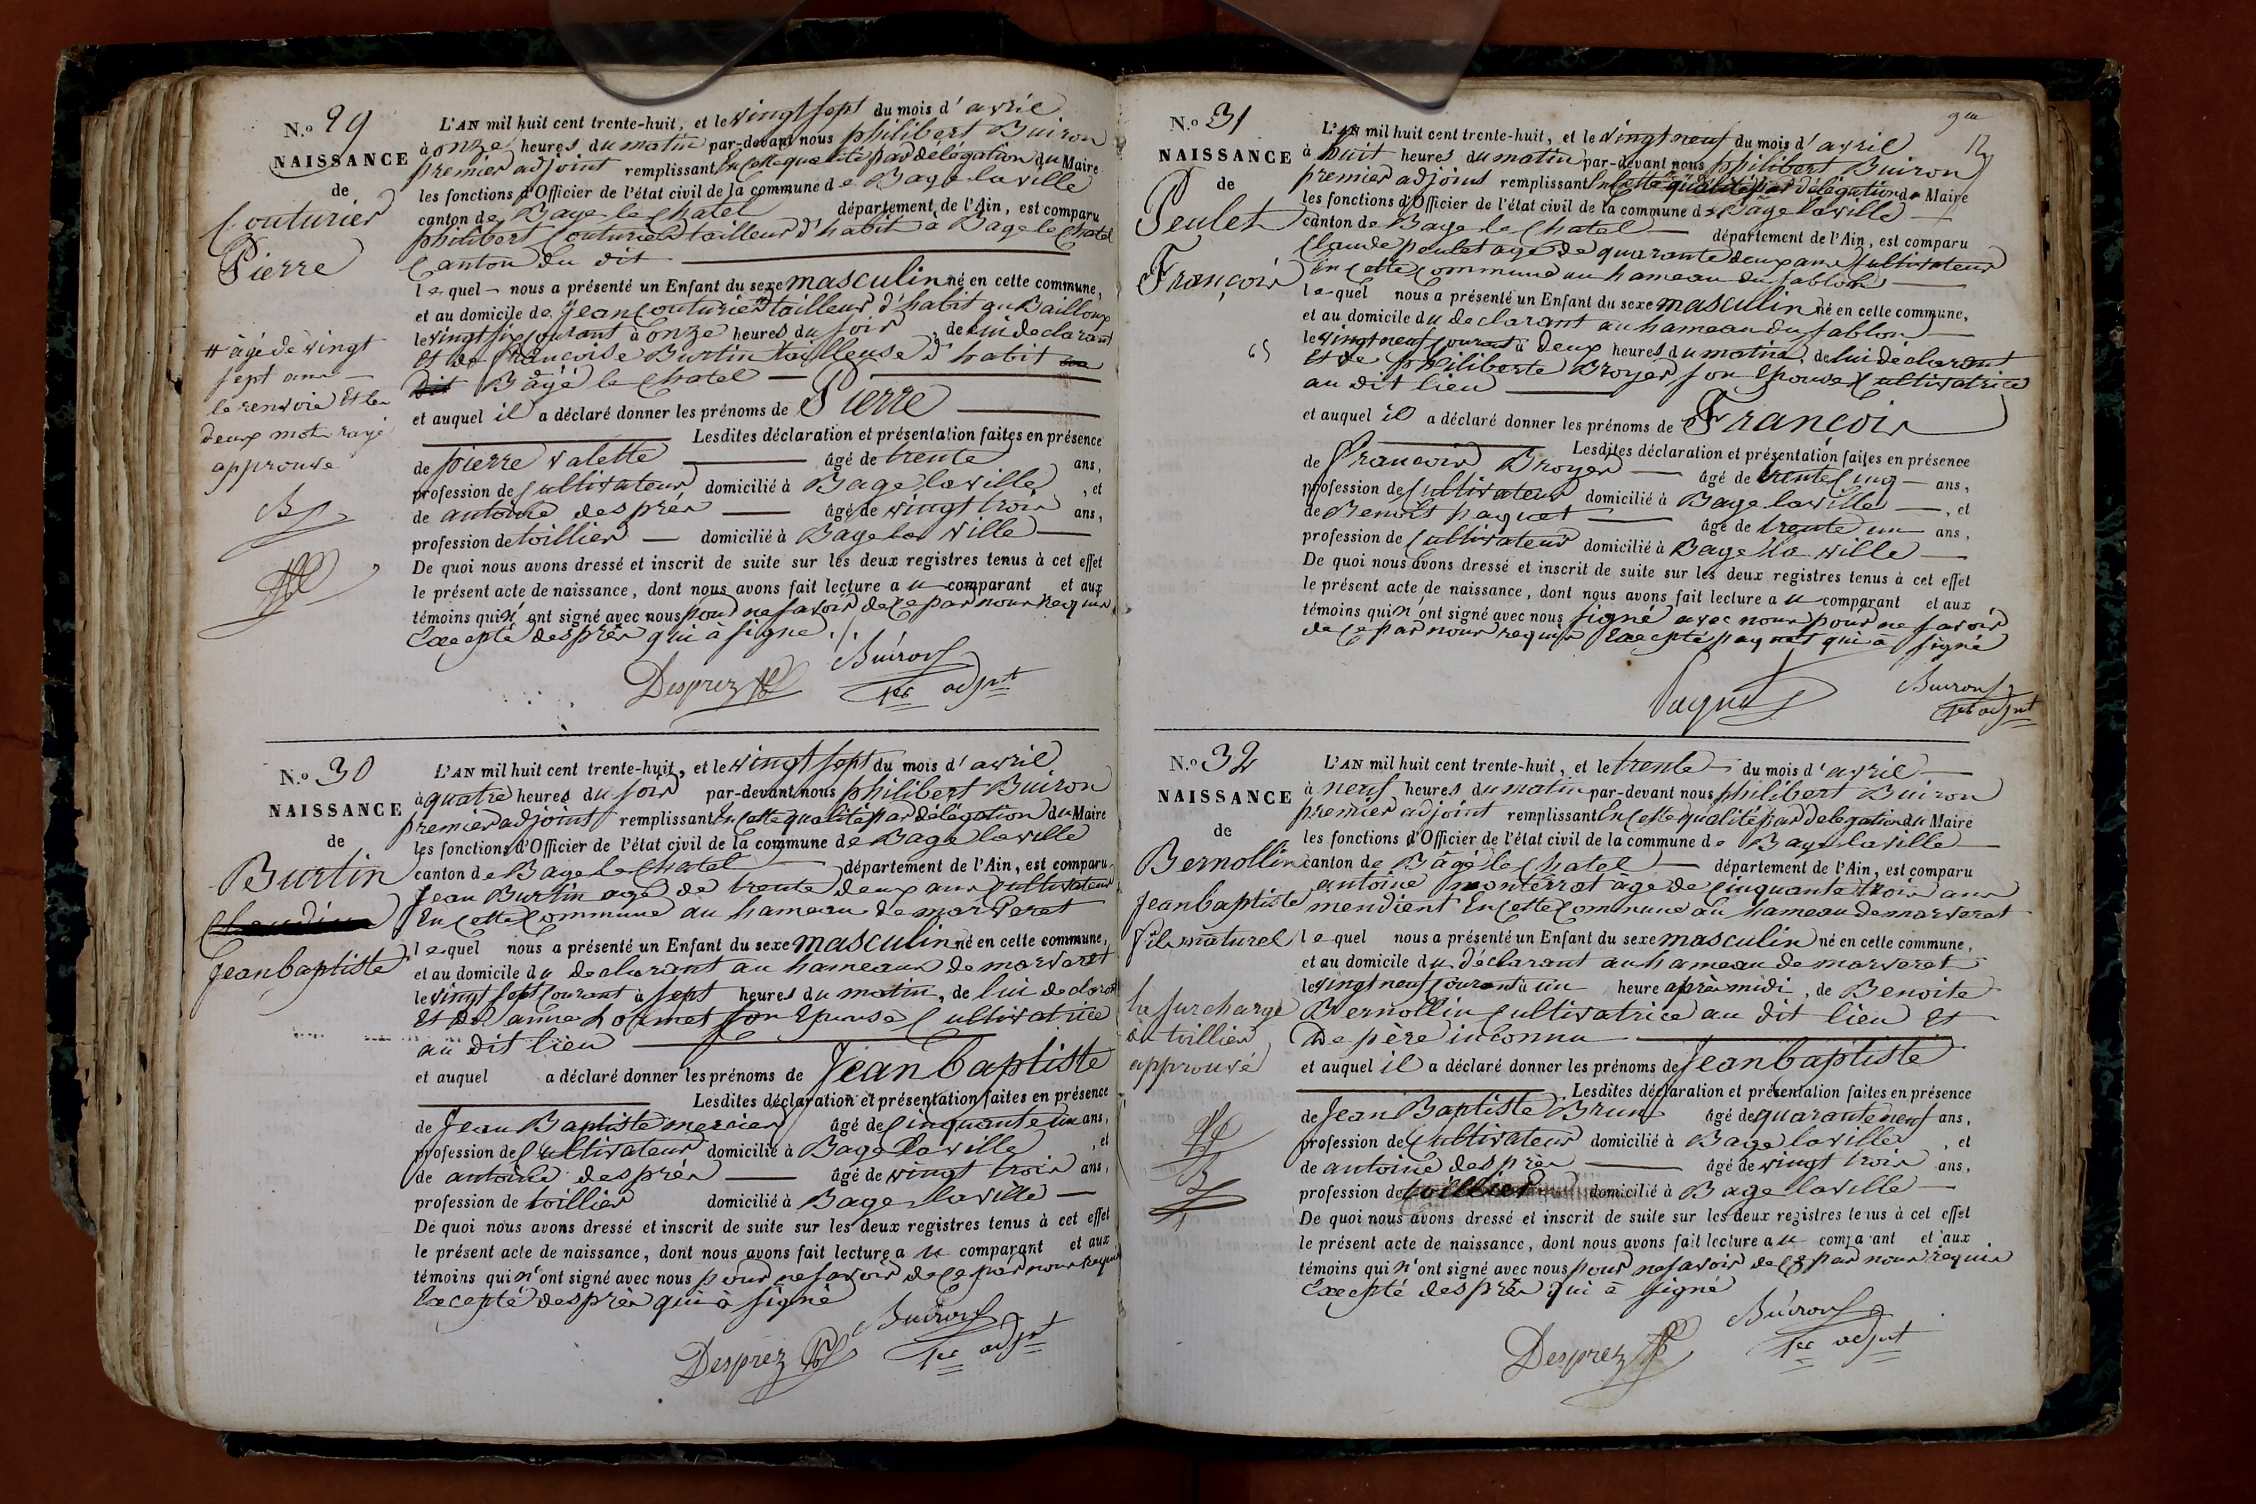 N.o 29
NAISSANCE
de
Couturier
Pierre
# âgé de vingt
sept ans
le renvoie et les
deux mots rayé
approuvé
L'AN mil huit cent trente-huit, et le vingt sept du mois d'avril
à onze heures du matin par-devant nous philibert Buiron
premier adjoint remplissant En cette qualité par délégation du Maire
les fonctions d'Officier de l'état civil de la commune de Bage la ville
canton de Bage le Chatel département de l'Ain, est comparu
philibert Couturier # tailleur d'habit à Bage le Chatel
Canton du dit
lequel nous a présenté un Enfant du sexe masculin né en cette commune,
et au domicile de Jean Couturier tailleur d'habit au Bailloux
le vingt six courant à onze heures du soir, de lui declarant
et de françoise Burtin tailleuse d'habit
Bâgé le Chatel
et auquel il a déclaré donner les prénoms de Pierre
Lesdites déclaration et présentation faites en présence
de pierre valette âgé de trente ans,
profession de Cultivateur domicilié à Bage la ville, et
de antoine desprès âgé de vingt trois ans,
profession de toillier domicilié à Bage la ville
De quoi nous avons dressé et inscrit de suite sur les deux registres tenus à cet effet
le présent acte de naissance, dont nous avons fait lecture au comparant et aux
témoins qui n'ont signé avec nous pour ne savoir de ce par nous requis
Excepté desprès qui à signé ./.
Desprez Buiron
1er adjnt
N.o 30
NAISSANCE
de
Burtin
Jean baptiste
L'AN mil huit cent trente-huit, et le vingt sept du mois d'avril
à quatre heures du soir par-devant nous philibert Buiron
premier adjoint remplissant En cette qualité par délégation du Maire
les fonctions d'Officier de l'état civil de la commune de Bage la ville
canton de Bage le Chatel département de l'Ain, est comparu
Jean Burtin agé de trente deux ans Cultivateur
En cette Commune au hameau de morveret
lequel nous a présenté un Enfant du sexe masculin né en cette commune,
et au domicile du declarant au hameau de morveret
le vingt sept courant à sept heures du matin, de lui declarant
et de anne Lormet son Epouse Cultivatrice
au dit lieu
et auquel a déclaré donner les prénoms de Jean baptiste
Lesdites déclaration et présentation faites en présence
de Jean Baptiste mercier âgé de Cinquante un ans,
profession de Cultivateur domicilié à Bage la ville, et
de antoine desprès âgé de vingt trois ans,
profession de toillier domicilié à Bage la ville
De quoi nous avons dressé et inscrit de suite sur les deux registres tenus à cet effet
le présent acte de naissance, dont nous avons fait lecture au comparant et aux
témoins qui n'ont signé avec nous pour ne savoir de ce par nous requis
Excepté desprès qui à signé
Desprez Buiron
1er adjnt
12
N.o 31
NAISSANCE
de
Peulet
François
L'AN mil huit cent trente-huit, et le vingt neuf du mois d'avril
à huit heures du matin par-devant nous philibert Buiron
premier adjoint remplissant En cette qualité par délégation du Maire
les fonctions d'Officier de l'état civil de la commune de Bage la ville
canton de Bage le Chatel département de l'Ain, est comparu
Claude peulet agé de quarante deux ans Cultivateur
En cette Commune au hameau du sablon
lequel nous a présenté un Enfant du sexe masculin né en cette commune,
et au domicile du declarant au hameau du sablon
le vingt neuf courant à deux heures du matin, de lui déclarant
et de philiberte Broyer son Epouse Cultivatrice
au dit lieu
et auquel il a déclaré donner les prénoms de François
Lesdites déclaration et présentation faites en présence
de François Broyer âgé de trente Cinq ans,
profession de Cultivateur domicilié à Bage la ville, et
de Benoit paquet âgé de trente un ans,
profession de Cultivateur domicilié à Bage la ville
De quoi nous avons dressé et inscrit de suite sur les deux registres tenus à cet effet
le présent acte de naissance, dont nous avons fait lecture au comparant et aux
témoins qui n'ont signé avec nous signé avec nous pour ne savoir
de ce par nous requis Excepté paquet qui à signé
Paquet Buiron
1er adjnt
N.o 32
NAISSANCE
de
Bernollin
Jean baptiste
fils naturel
la surcharge
à toillier
approuvé
L'AN mil huit cent trente-huit, et le trente du mois d'avril
à neuf heures du matin par-devant nous philibert Buiron
premier adjoint remplissant En cette qualité par délégation du Maire
les fonctions d'Officier de l'état civil de la commune de Bage la ville
canton de Bâgé le Chatel département de l'Ain, est comparu
antoine monterrat âge de Cinquante trois ans
mendient En cette Commune au hameau de morveret
lequel nous a présenté un Enfant du sexe masculin né en cette commune,
et au domicile du déclarant au hameau de morveret
le vingt neuf courant à un heure après midi, de Benoite
Bernollin Cultivatrice au dit lieu Et
De père inconnu
et auquel il a déclaré donner les prénoms de Jean baptiste
Lesdites déclaration et présentation faites en présence
de Jean Baptiste Brun âgé de quarante neuf ans,
profession de Cultivateur domicilié à Bage la ville, et
de antoine desprès âgé de vingt trois ans,
profession de toillier domicilié à Bage la ville
De quoi nous avons dressé et inscrit de suite sur les deux registres tenus à cet effet
le présent acte de naissance, dont nous avons fait lecture au comparant et aux
témoins qui n'ont signé avec nous pour ne savoir de ce par nous requis
Excepté desprès qui à signé
Desprez Buiron
1er adjnt